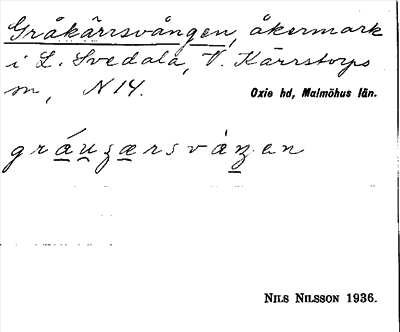 Gråkärrsvången, åkermark
i L. Svedala, V. Kärrstorps
sn, N 14.
Oxie hd, Malmöhus län.
NILS NILSSON 1936.